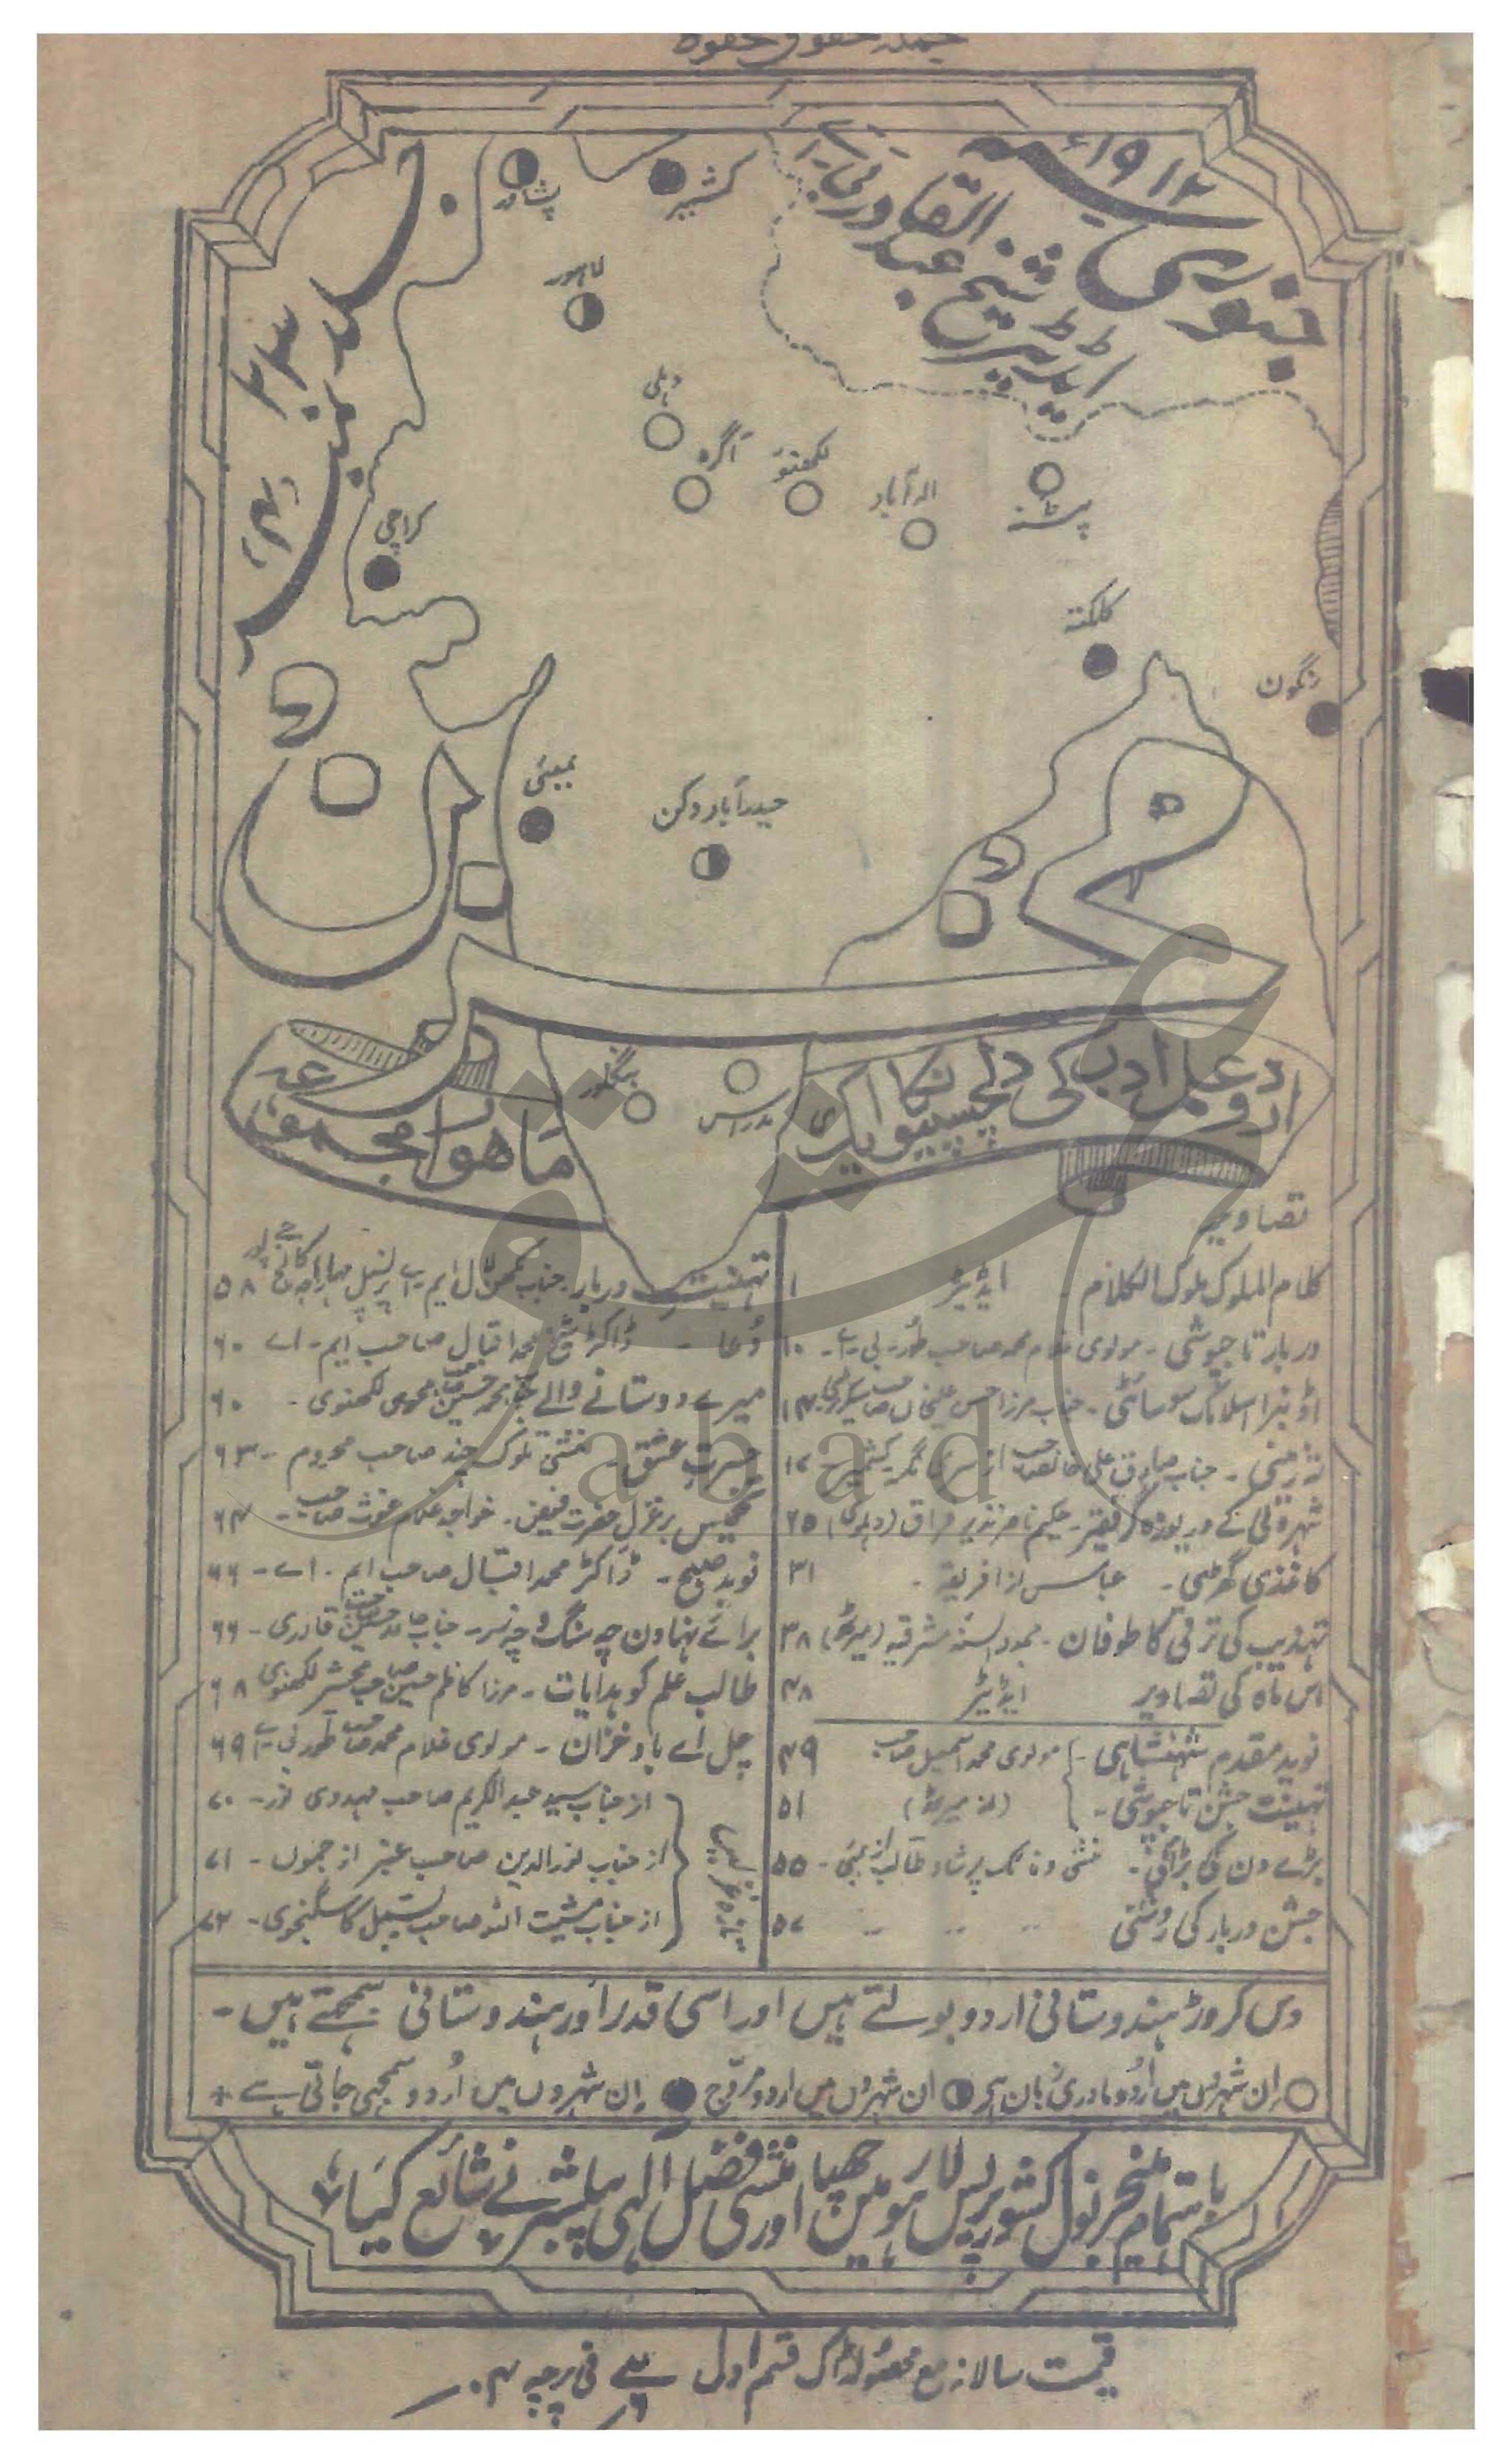 جملہ حقوق محفوظ
جنوری
۱۹۱۲ء
ایڈیٹر شیخ عبدالقادر بی۔اے
جلد ۲۲
نمبر ۴
پشاور
کشمیر
لاہور
دہلی
آگرہ
لکھنؤ
الہ آباد
پٹنہ
کراچی
کلکتہ
رنگون
بمبئی
حیدرآباد دکن
مخزن
بنگلور
مدراس
اردو علم ادب کی دلچسپیوں کا ایک
ماہوار مجموعہ
تصاویر
کلام الملوک ملوک الکلام - ایڈیٹر ۱
دربار تاجپوشی - مولوی غلام محمد صاحب طور بی۔اے - ۱۰
اڈنبرا اسلامک سوسائٹی - جناب مرزا حسن علیخاں صاحب سیکرٹری ۱۴
جناب صادق علی خانصاحب از سری نگر کشمیر - ۱۷
حکیم ناصر نذیر فراق (دہلوی) ۲۵
کاغذی گھڑی - عباس از افریقہ - ۳۱
تہذیب کی ترقی کا طوفان - السنہ مشرقیہ (میرٹھ) ۳۸
اس ماہ کی تصاویر ایڈیٹر ۴۸
نوید مقدم شہنشاہی - مولوی محمد اسمٰعیل صاحب ۴۹
تہنیت جشن تاجپوشی - (از میرٹھ) ۵۱
بڑے دن کی بڑائی - منشی ونایک پرشاد طالب از بمبئی - ۵۵
جشن دربار کی روشنی ۵۷
تہنیت دربار - جناب مکھن لال ایم۔اے پرنسپل مہاراجہ کالج جے پور ۵۸
دُعا - ڈاکٹر شیخ محمد اقبال صاحب ایم۔اے ۶۰
میرے دوستانے والے - جناب محمد حسین صاحب محوی لکھنوی - ۶۰
حسرتِ عشق - منشی تلوک چند صاحب محروم - ۶۳
تخمیس بر غزل حضرت فیضی - خواجہ غلام غوث صاحب - ۶۴
نوید صبح - ڈاکٹر محمد اقبال صاحب ایم۔اے - ۶۶
برائے نہادن چہ سنگ و چہ زر - جناب حامد حسین صاحب قادری - ۶۶
طالب علم کو ہدایات - مرزا کاظم حسین صاحب محشر لکھنوی ۶۸
چل اے باد خزاں - مولوی غلام محمد صاحب طور بی۔اے ۶۹
از جناب سید عبدالکریم صاحب مہدوی نور - ۷۰
از جناب نورالدین صاحب عنبر از جموں - ۷۱
از جناب مشیت اللہ صاحب بسمل کاسگنجوی - ۷۲
دس کروڑ ہندوستانی اردو بولتے ہیں اور اسی قدر اور ہندوستانی سمجھتے ہیں -
○ ان شہروں میں اُردو مادری زبان ہے ◑ ان شہروں میں اردو مروّج ● ان شہروں میں اُردو سمجھی جاتی ہے *
باہتمام منیجر نول کشور پریس لاہور میں چھپا اور منشی فضل الٰہی پبلشر نے شائع کیا
قیمت سالانہ مع محصولڈاک قسم اول فی پرچہ ۴؍
abad